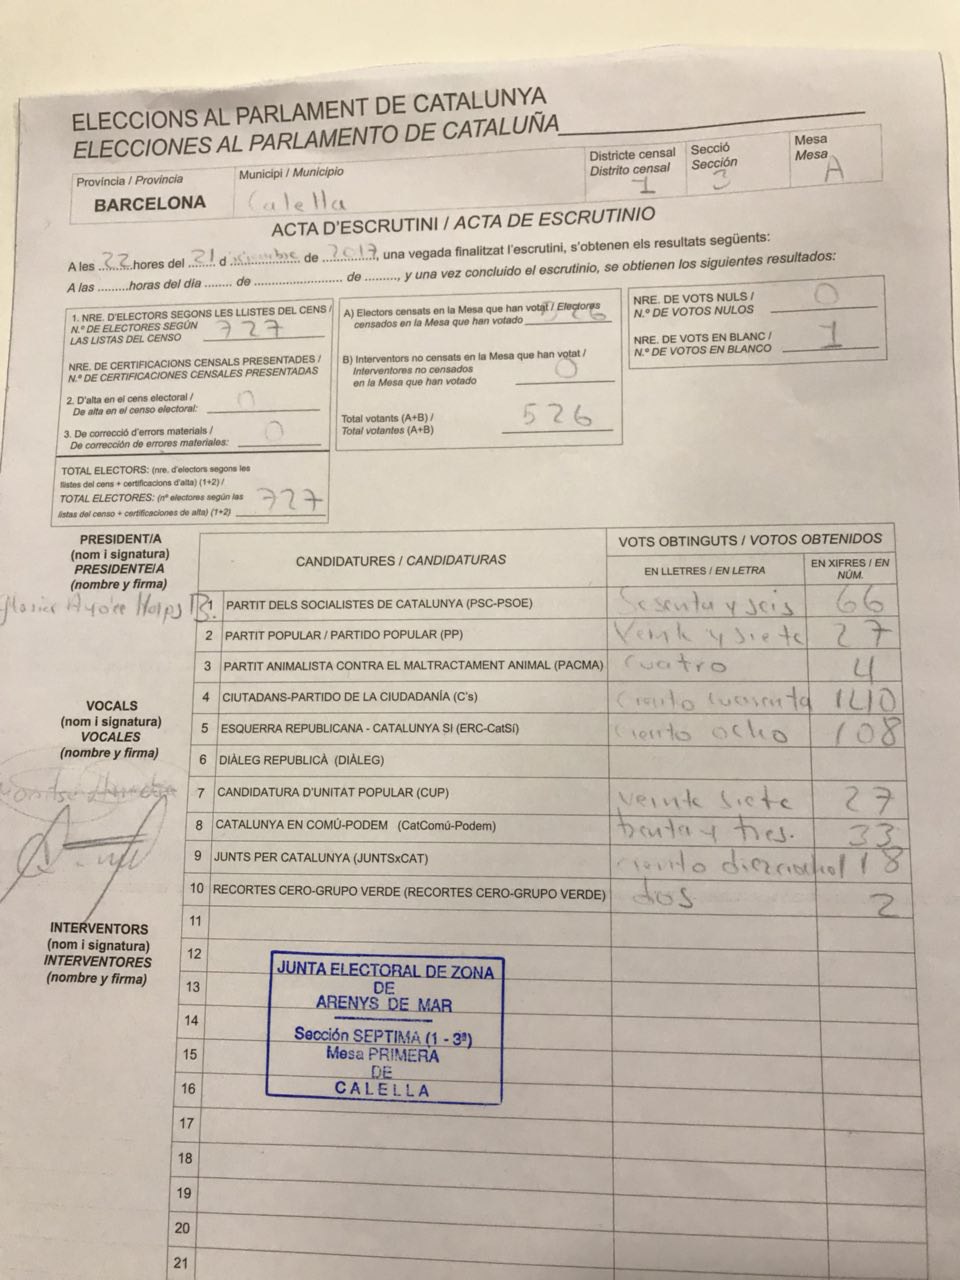 ELECCIONS AL PARLAMENT DE CATALUNYA
ELECCIONES AL PARLAMENTO DE CATALUÑA
Província / Provincia
BARCELONA
Municipi / Municipio
Calella
Districte censal
Distrito censal
1
Secció
Sección
3
Mesa
Mesa
A
ACTA D'ESCRUTINI / ACTA DE ESCRUTINIO
A les 22 hores del 21 d diciembre de 2017, una vegada finalitzat l'escrutini, s'obtenen els resultats següents:
A las .........horas del día ....... de ...................... de ........, y una vez concluido el escrutinio, se obtienen los siguientes resultados:
1. NRE. D'ELECTORS SEGONS LES LLISTES DEL CENS /
N.º DE ELECTORES SEGÚN
LAS LISTAS DEL CENSO 727
NRE. DE CERTIFICACIONS CENSALS PRESENTADES /
N.º DE CERTIFICACIONES CENSALES PRESENTADAS
2. D'alta en el cens electoral /
De alta en el censo electoral: 0
3. De correcció d'errors materials /
De corrección de errores materiales: 0
TOTAL ELECTORS: (nre. d'electors segons les
llistes del cens + certificacions d'alta) (1+2) /
TOTAL ELECTORES: (nº electores según las
listas del censo + certificaciones de alta) (1+2) 727
A) Electors censats en la Mesa que han votat / Electores
censados en la Mesa que han votado 526
B) Interventors no censats en la Mesa que han votat /
Interventores no censados
en la Mesa que han votado 0
Total votants (A+B) /
Total votantes (A+B) 526
NRE. DE VOTS NULS /
N.º DE VOTOS NULOS 0
NRE. DE VOTS EN BLANC /
N.º DE VOTOS EN BLANCO 1
PRESIDENT/A
(nom i signatura)
PRESIDENTE/A
(nombre y firma)
VOCALS
(nom i signatura)
VOCALES
(nombre y firma)
INTERVENTORS
(nom i signatura)
INTERVENTORES
(nombre y firma)
CANDIDATURES / CANDIDATURAS
VOTS OBTINGUTS / VOTOS OBTENIDOS
EN LLETRES / EN LETRA
EN XIFRES / EN
NÚM.
1 PARTIT DELS SOCIALISTES DE CATALUNYA (PSC-PSOE) Sesenta y seis 66
2 PARTIT POPULAR / PARTIDO POPULAR (PP) y siete 27
3 PARTIT ANIMALISTA CONTRA EL MALTRACTAMENT ANIMAL (PACMA) cuatro 4
4 CIUTADANS-PARTIDO DE LA CIUDADANÍA (C's) ciento cuarenta 140
5 ESQUERRA REPUBLICANA - CATALUNYA SI (ERC-CatSí) ciento ocho 108
6 DIÀLEG REPUBLICÀ (DIÀLEG)
7 CANDIDATURA D'UNITAT POPULAR (CUP) veinte siete 27
8 CATALUNYA EN COMÚ-PODEM (CatComú-Podem) trenta y tres. 33
9 JUNTS PER CATALUNYA (JUNTSxCAT) ciento 118
10 RECORTES CERO-GRUPO VERDE (RECORTES CERO-GRUPO VERDE) dos 2
11
12
13
14
15
16
17
18
19
20
21
JUNTA ELECTORAL DE ZONA
DE
ARENYS DE MAR
Sección SEPTIMA (1 - 3ª)
Mesa PRIMERA
DE
CALELLA